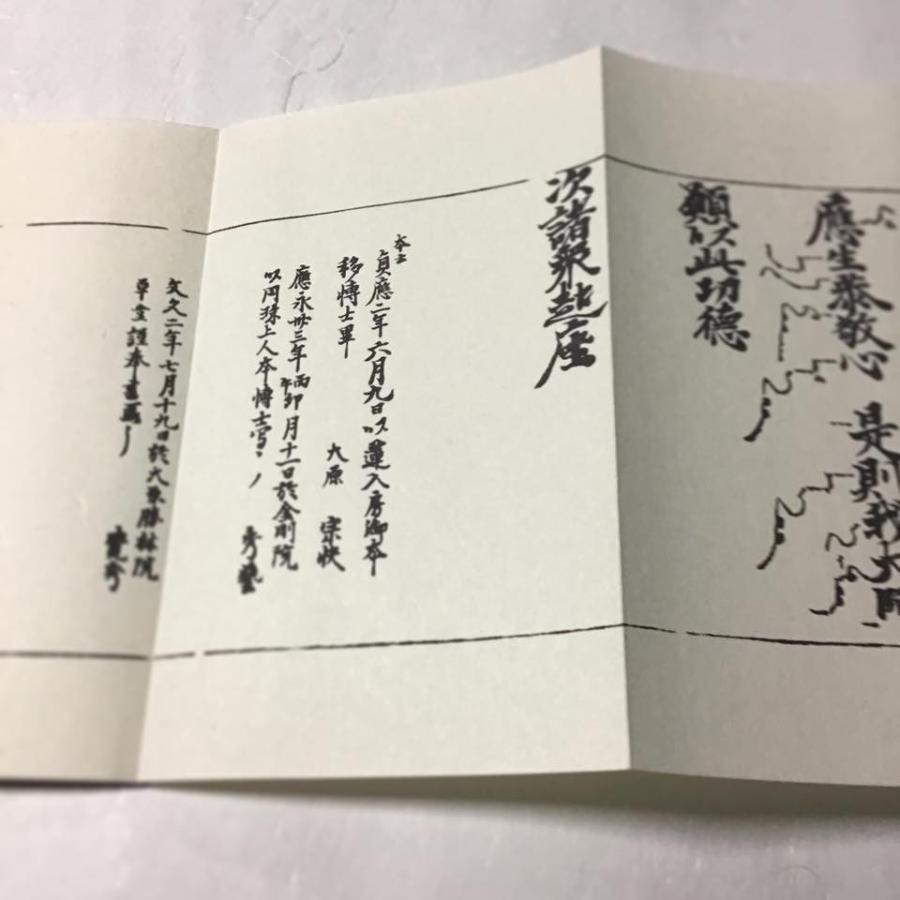 應生恭敬心 是則我大師
願以此功德
次諸衆起座
本云
貞應二年六月九日以蓮入房御本
移博士畢 大原 宗快
應永卅三年丙午卯月十一日於金剛院
以円珠上人本博士写了 秀
文久二年七月十九日於大乗勝林院
草堂謹奉書寫了 覚秀